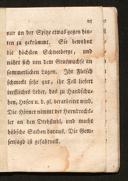 nur an der Spitze etwas gegen hin-
ten zu gekrümmt. Sie bewohnt
die höchsten Schneeberge, und
nähert sich von dem Grasmuchs an
sommerlichen Tagen. Ihr Fleisch
schmeckt sehr gut, ihr Fell liefert
treffliches Leder, das zu Handschu-
hen, Hosen u. d. gl. verarbeitet wird.
Die Hörner nimmt der Horndrechs-
ler an den Drehstuhl, und macht
hübsche Sachen daraus. Die Gem-
senjagd ist gefahrvoll.